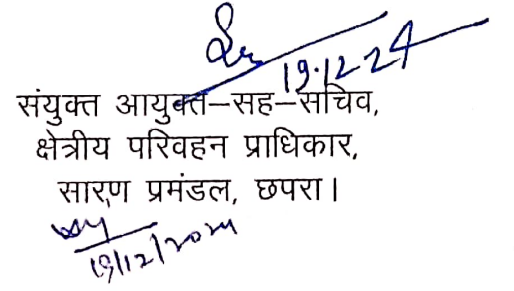 19.12.24
संयुक्त आयुक्त–सह–सचिव,
क्षेत्रीय परिवहन प्राधिकार,
सारण प्रमंडल, छपरा।
19/12/2024